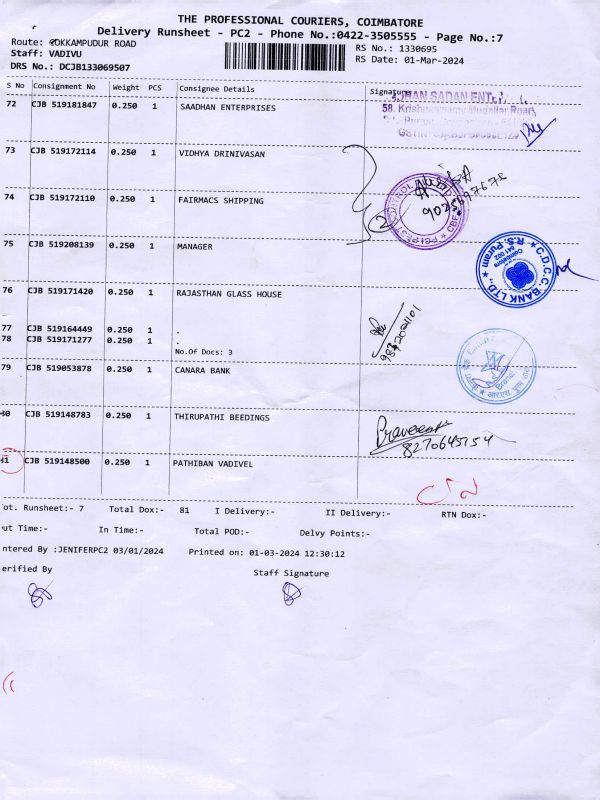 THE PROFESSIONAL COURIERS, COIMBATORE
Delivery Runsheet - PC2 - Phone No.:0422-3505555 - Page No.:7
Route: GOKKAMPUDUR ROAD
Staff: VADIVU
DRS No.: DCJB133069507
RS No.: 1330695
RS Date: 01-Mar-2024
S No Consignment No Weight PCS Consignee Details Signature
72 CJB 519181847 0.250 1 SAADHAN ENTERPRISES
58, Krishnaswamy Mudaliar Road,
73 CJB 519172114 0.250 1 VIDHYA DRINIVASAN
74 CJB 519172110 0.250 1 FAIRMACS SHIPPING
2
75 CJB 519208139 0.250 1 MANAGER
C.D.C.C. BANK LTD. R.S. Puram
Coimbatore
641 002
76 CJB 519171420 0.250 1 RAJASTHAN GLASS HOUSE
77 CJB 519164449 0.250 1 .
78 CJB 519171277 0.250 1 .
No.Of Docs: 3
79 CJB 519053878 0.250 1 CANARA BANK
80 CJB 519148783 0.250 1 THIRUPATHI BEEDINGS
Praveen
8270645154
81 CJB 519148500 0.250 1 PATHIBAN VADIVEL
ot. Runsheet:- 7 Total Dox:- 81 I Delivery:- II Delivery:- RTN Dox:-
ut Time:- In Time:- Total POD:- Delvy Points:-
ntered By :JENIFERPC2 03/01/2024 Printed on: 01-03-2024 12:30:12
erified By Staff Signature